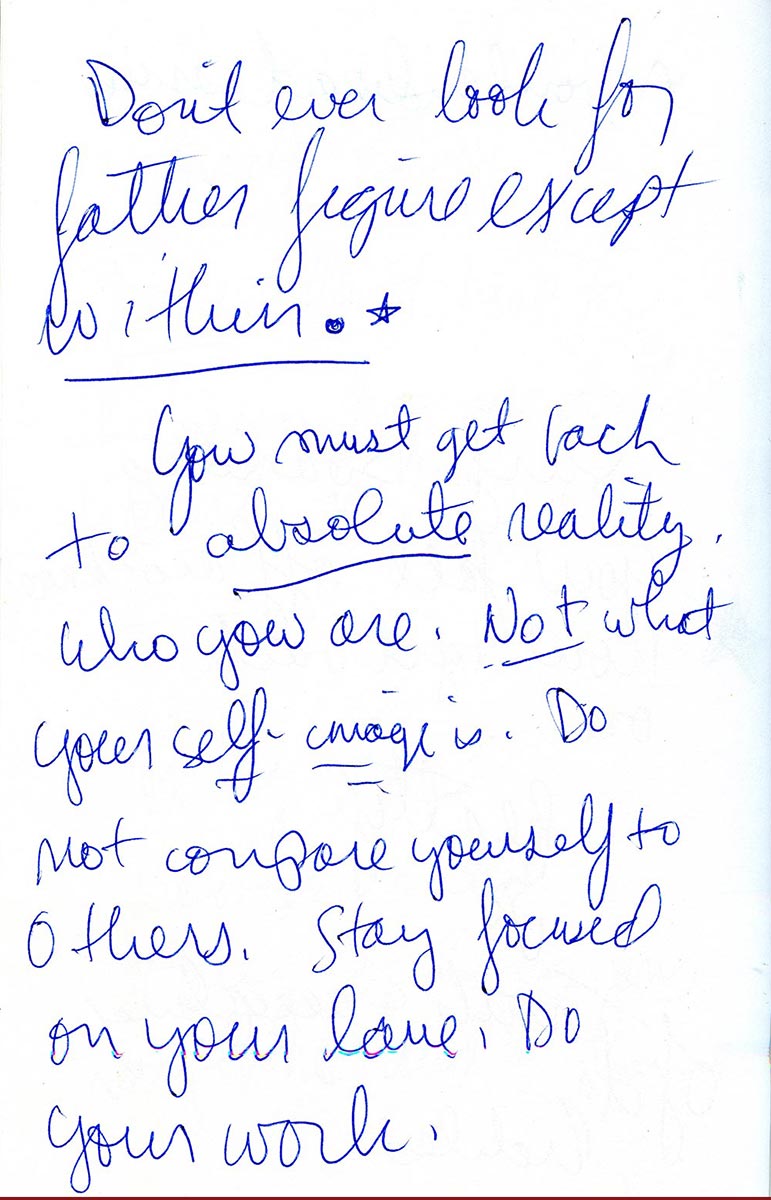 Don't ever look for
father figure except
within. ☆
You must get back
to absolute reality.
Who you are. Not what
your self-image is. Do
not compare yourself to
others. Stay focused
on your lane. Do
your work.